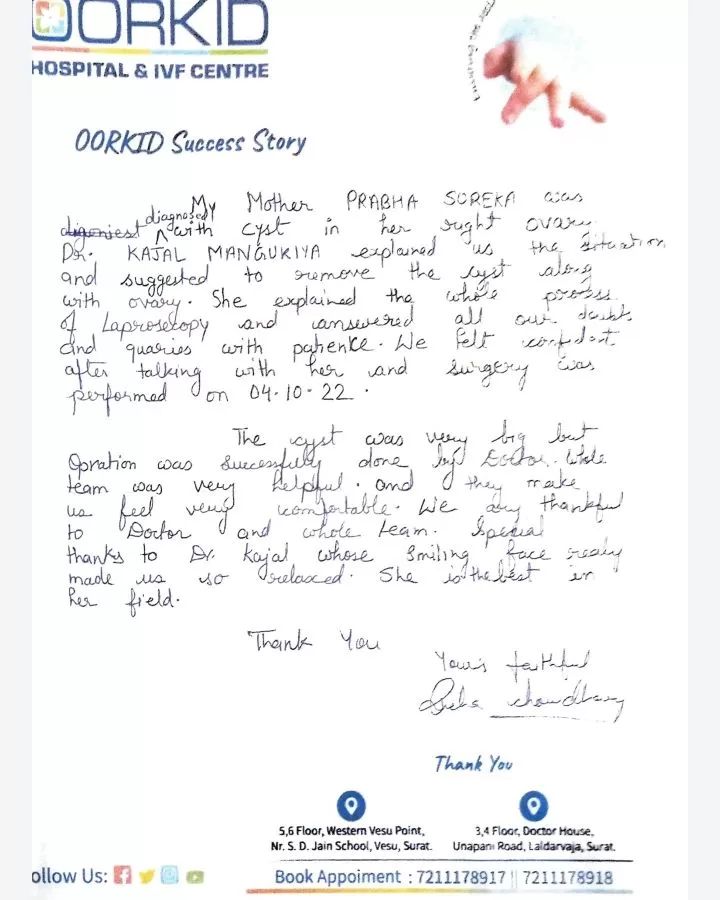 OORKID
HOSPITAL & IVF CENTRE
OORKID Success Story
My Mother PRABHA SUREKA was
digoniest diagnosed with cyst in her right ovary.
Dr. KAJAL MANGUKIYA explained us the situation
and suggested to remove the cyst along
with ovary. She explained the whole process
of Laproscopy and answered all our doubts
and quaries with patience. We felt confident
after talking with her and surgery was
performed on 04.10.22.
The cyst was very big but
Opration was successfully done by Doctor. Whole
team was very helpful. and they make
us feel very comfortable. We are thankful
to Doctor and whole team. Special
thanks to Dr. Kajal whose smiling face realy
made us so relaxed. She is the best in
her field.
Thank You
Your's faithful
choudhary
Thank You
5,6 Floor, Western Vesu Point,
Nr. S. D. Jain School, Vesu, Surat.
3,4 Floor, Doctor House,
Unapani Road, Laldarvaja, Surat.
ollow Us:
Book Appoiment : 7211178917 || 7211178918